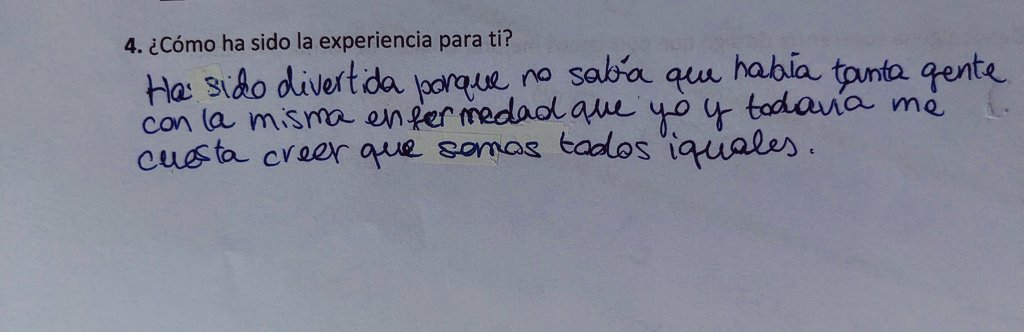 4. ¿Cómo ha sido la experiencia para ti?
Ha sido divertida porque no sabía que había tanta gente
con la misma enfermedad que yo y todavía me
cuesta creer que somos todos iguales.